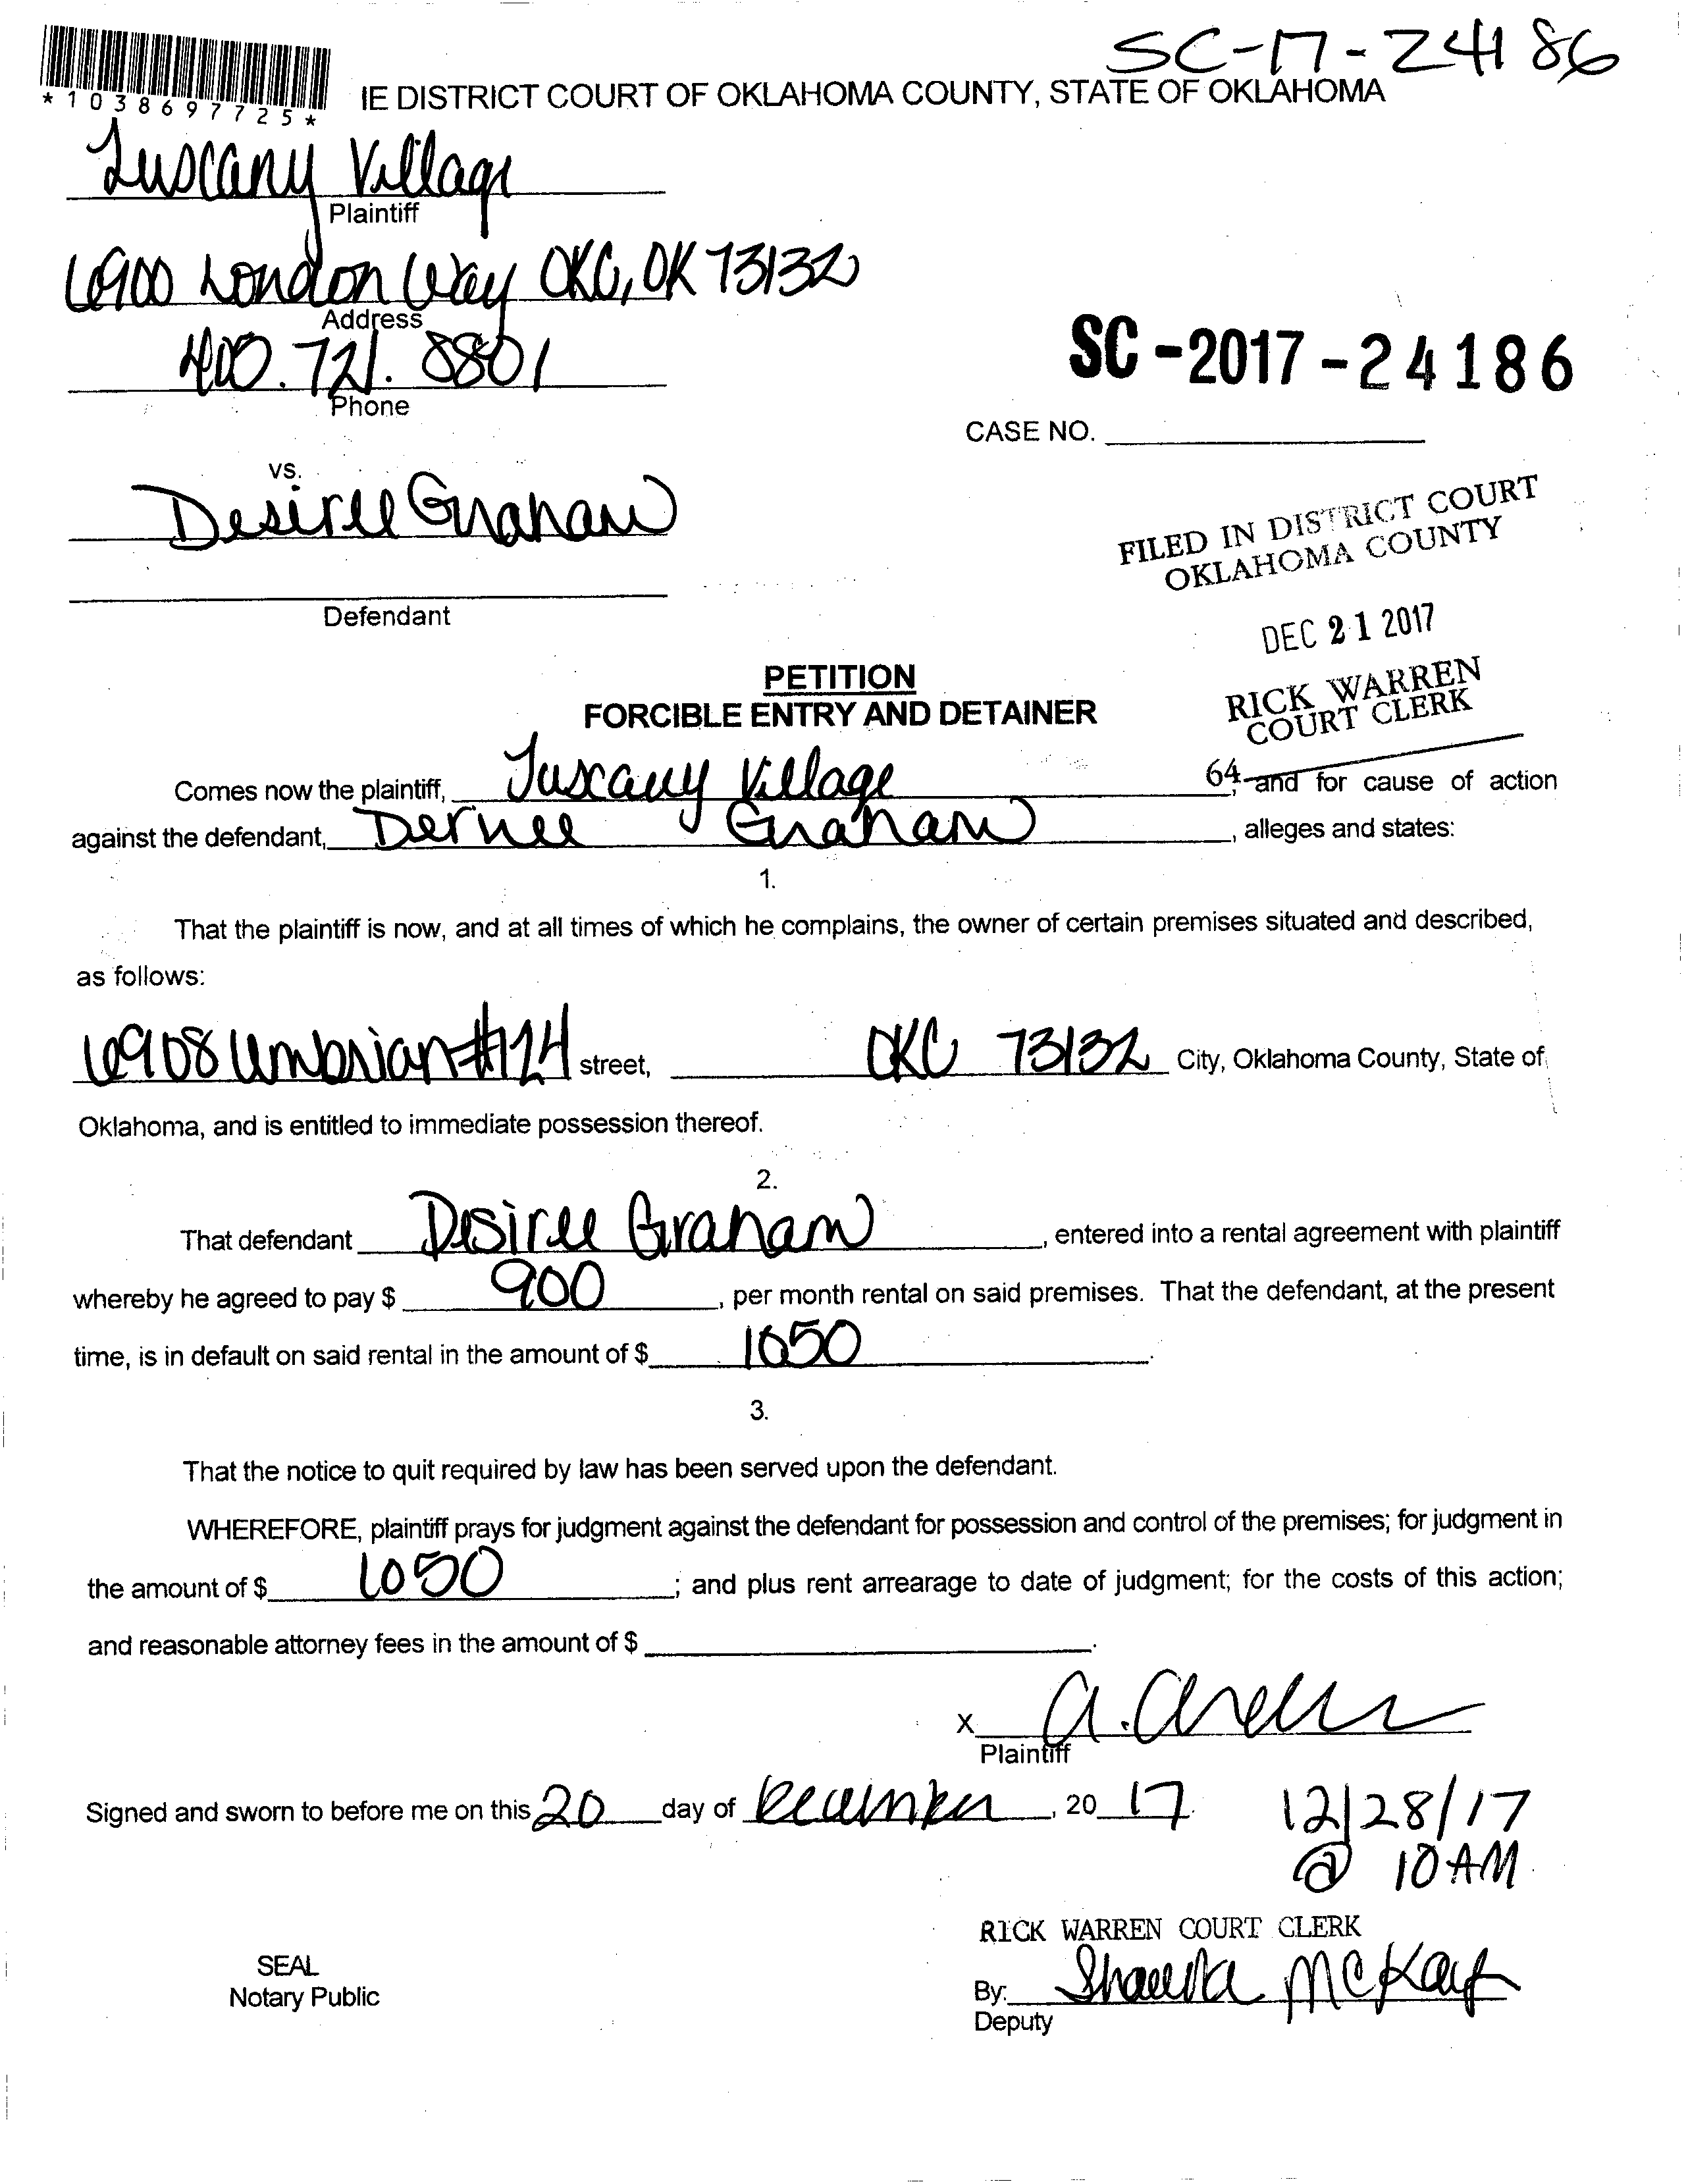 SC-17-24186
*1038697725*
IE DISTRICT COURT OF OKLAHOMA COUNTY, STATE OF OKLAHOMA
Tuscany Village
Plaintiff
6900 London Way OKC, OK 73132
Address
400.721.8801
Phone
SC-2017-24186
CASE NO.
vs.
Desiree Graham
Defendant
FILED IN DISTRICT COURT
OKLAHOMA COUNTY
DEC 21 2017
RICK WARREN
COURT CLERK
PETITION
FORCIBLE ENTRY AND DETAINER
64
Comes now the plaintiff, Tuscany Village, and for cause of action
against the defendant, Graham, alleges and states:
1.
That the plaintiff is now, and at all times of which he complains, the owner of certain premises situated and described,
as follows:
6908 Umbrian #124 street, OKC 73132 City, Oklahoma County, State of
Oklahoma, and is entitled to immediate possession thereof.
2.
That defendant Desiree Graham, entered into a rental agreement with plaintiff
whereby he agreed to pay $ 900, per month rental on said premises. That the defendant, at the present
time, is in default on said rental in the amount of $ 1050.
3.
That the notice to quit required by law has been served upon the defendant.
WHEREFORE, plaintiff prays for judgment against the defendant for possession and control of the premises; for judgment in
the amount of $ 1050; and plus rent arrearage to date of judgment; for the costs of this action;
and reasonable attorney fees in the amount of $ .
x
Plaintiff
Signed and sworn to before me on this 20 day of December, 20 17.
12/28/17
@ 10AM
RICK WARREN COURT CLERK
SEAL
Notary Public
By: Shawna McKay
Deputy